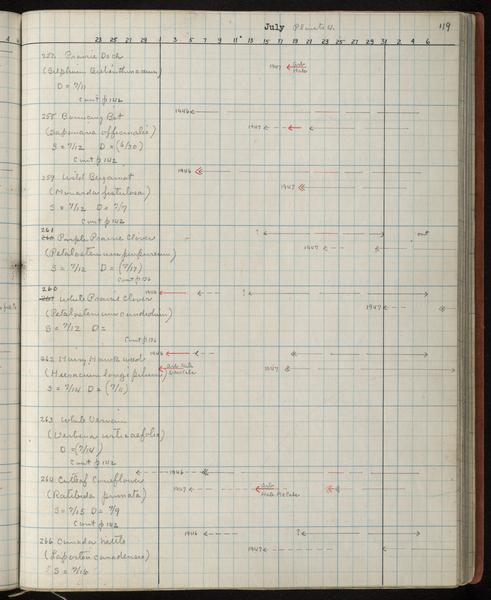 July Plants 4. 119
23 25 27 29 1 3 5 7 9 11 13 15 17 19 21 23 25 27 29 31 2 4 6
257 Prairie Dock
(Silphium terebinthinaceum) 1947 Arb
D = 7/11
Cont p 142
258 Bouncing Bet 1946
(Saponaria officinalis) 1947
S = 7/12 D = (6/30)
Cont p 142
259 Wild Bergamot 1946
(Monarda fistulosa) 1947
S = 7/12 D = 7/7
Cont p 142
261
260 Purple Prairie Clover ? out
(Petalostemum purpureum) 1947
S = 7/12 D = (7/17)
Cont p 136
260
261 White Prairie Clover 1946 ?
(Petalostemum candidum) 1947
S = 7/12 D =
Cont p 136
262 Hairy Hawkweed 1946
(Hieracium longipilum) 1947
S = 7/14 D = (7/11)
263 White Vervain
(Verbena urticaefolia)
D = (7/14)
Cont p 142
264 Cutleaf Coneflower 1946
(Ratibida pinnata) 1947 Arb
S = 7/15 D = 7/9
Cont p 142
266 Canada Nettle 1946 ?
(Laportea canadensis) 1947
S = 7/16